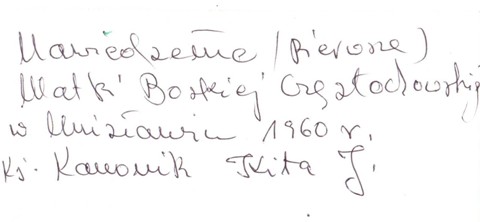 Nawiedzenie (Pierwsze)
Matki Boskiej Częstochowskiej
w 1960 r.
Ks. Kanonik Kita J.